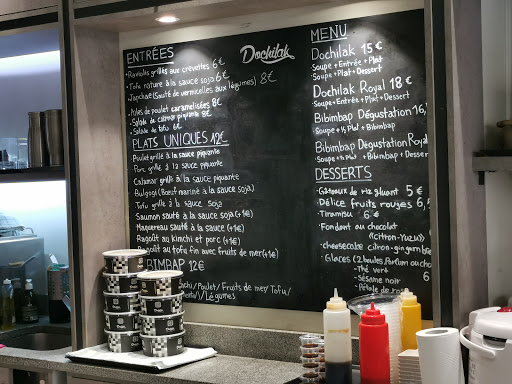 ENTRÉES
Dochilak
• Raviolis grillés aux crevettes 6€
• Tofu rature à la sauce soja 6€
• Japchae (Sauté de vermicelles aux légumes) 8€
• Ailes de poulet caramelisées 8€
• Salade de calamar piquante 8€
• Salade de tofu 6€
PLATS UNIQUES 12€
Poulet grillé à la sauce piquante
Porc grillé à la sauce piquante
Calamar grillé à la sauce piquante
Bulgogi (Bœuf mariné à la sauce soja)
Tofu grillé à la sauce soja
Saumon sauté à la sauce soja (+1€)
Maquereau sauté à la sauce (+1€)
Ragoût au kimchi et porc (+1€)
Ragoût au tofu fin avec fruits de mer (+1€)
BIMBAP 12€
/Poulet/Fruits de mer/Tofu/
/Légumes
MENU
Dochilak 15€
Soupe + Entrée + Plat
Soupe + Plat + Dessert
Dochilak Royal 18€
Soupe + Entrée + Plat + Dessert
Bibimbap Dégustation 16,
Soupe + ½ Plat + Bibimbap
Bibimbap Dégustation Royal
Soupe + ½ Plat + Bibimbap + Desser
DESSERTS
• Gâteaux de riz gluant 5€
• Délice fruits rouges 6,5
• Tiramisu 6€
• Fondant au chocolat
«Citron-Yuzu»
• cheesecake citron-gingembre
• Glaces (2 boules, Parfum au cho
- Thé vert 6
- Sésame noir
- Pétale de